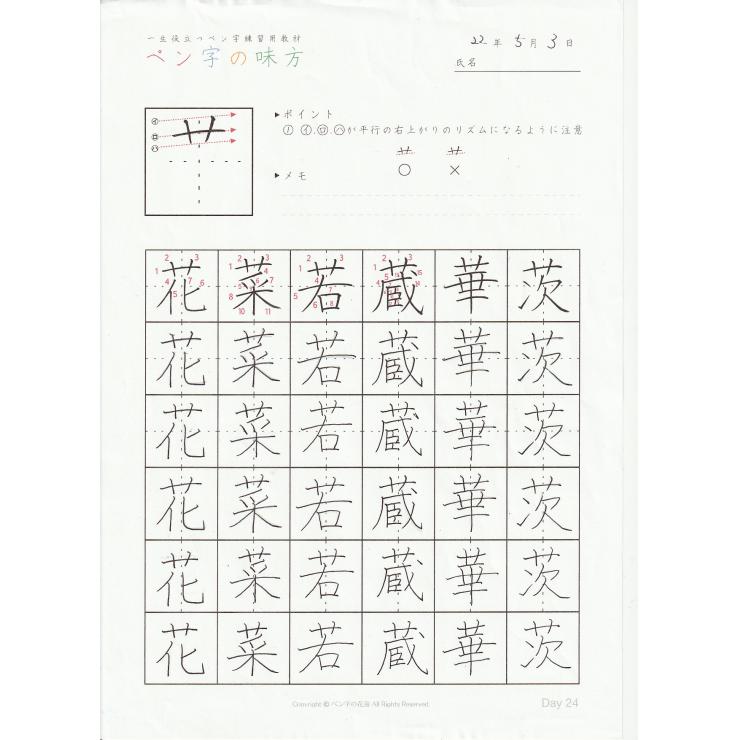 一生役立つペン字練習用教材
ペン字の味方
22年 5月 3日
氏名
イ
ロ
ハ
▶ポイント
① イ.ロ.ハが平行の右上がりのリズムになるように注意
○ ×
▶メモ
花 菜 若 蔵 華 茨
花 菜 若 蔵 華 茨
花 菜 若 蔵 華 茨
花 菜 若 蔵 華 茨
花 菜 若 蔵 華 茨
花 菜 若 蔵 華 茨
Copyright © ペン字の花海 All Rights Reserved.
Day 24